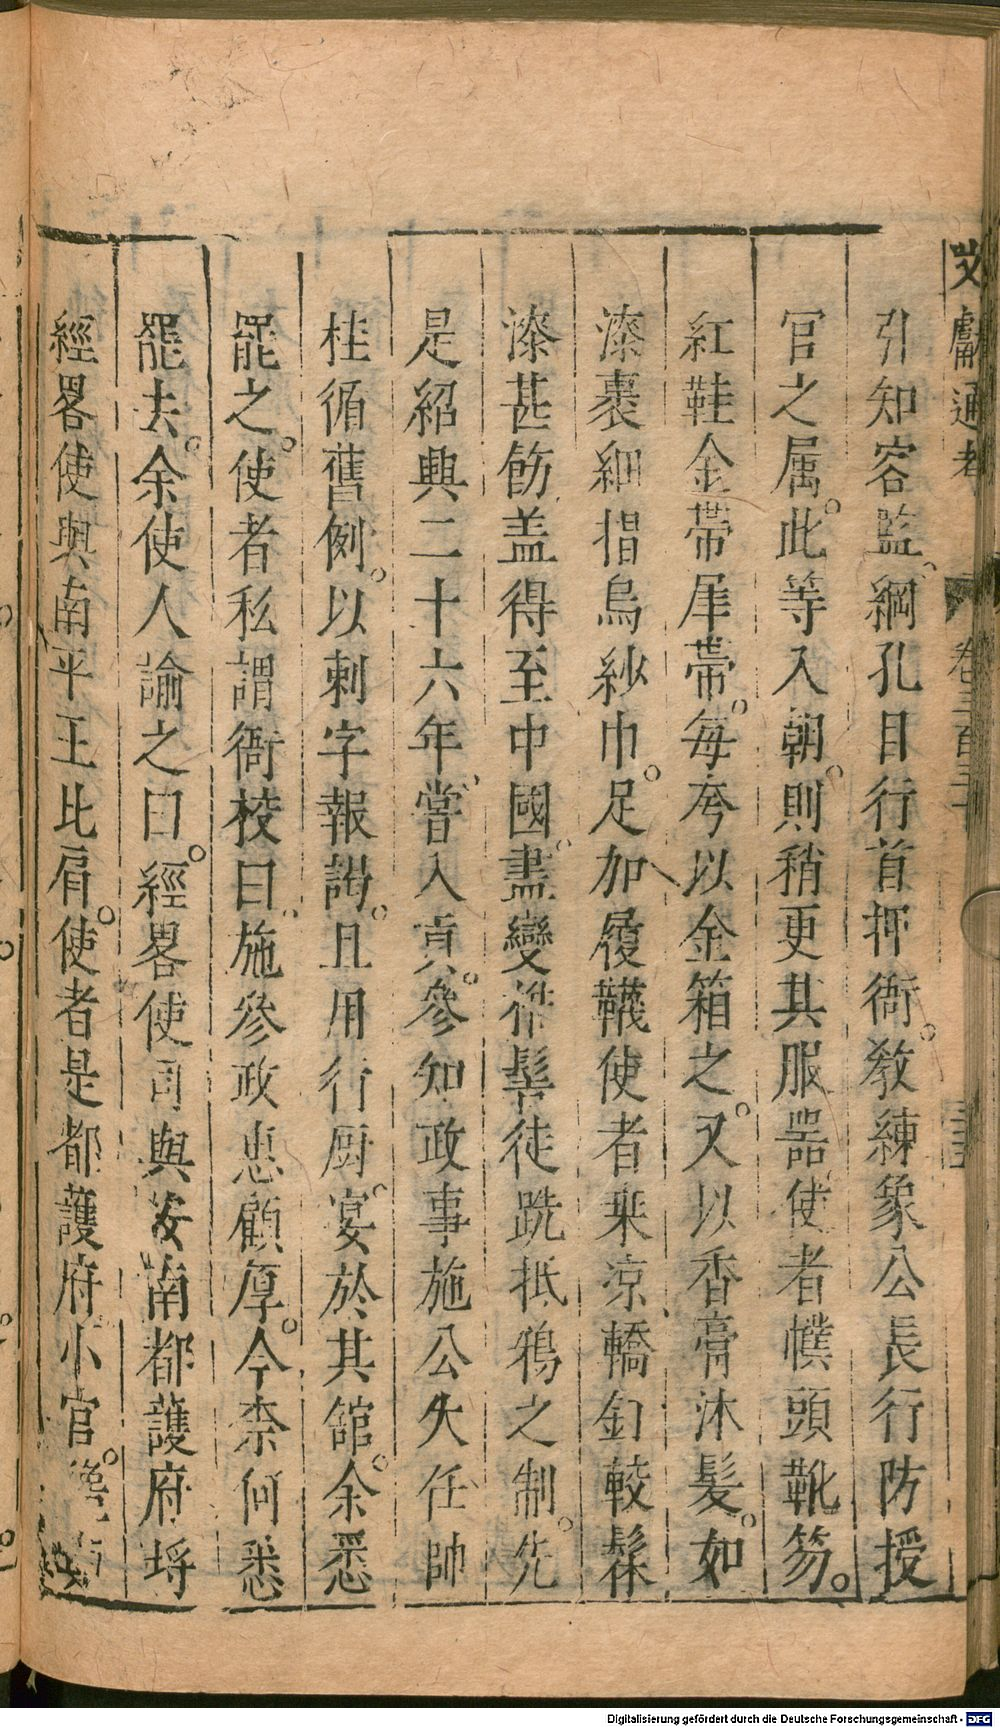 文獻通考 卷三百三十
引知客監綱孔目行首押衙教練象公長行防授
官之属此等入朝則稍更其服器使者幞頭靴笏
紅鞋金帶犀帶每夸以金箱之又以香膏沐髮如
漆裹細揩烏紗巾足加履韈使者乗凉轎釦較髹
漆甚飾盖得至中國盡變椎髻徒跣抵鴉之制先
是紹興二十六年嘗入貢參知政事施公大任帥
桂循舊例以刺字報謁且用行厨宴於其館余悉
罷之使者私謂衙校曰施參政惠顧厚今柰何悉
罷去余使人諭之曰經畧使司與安南都護府埒
經畧使與南平王比肩使者是都護府小官
Digitalisierung gefördert durch die Deutsche Forschungsgemeinschaft - DFG